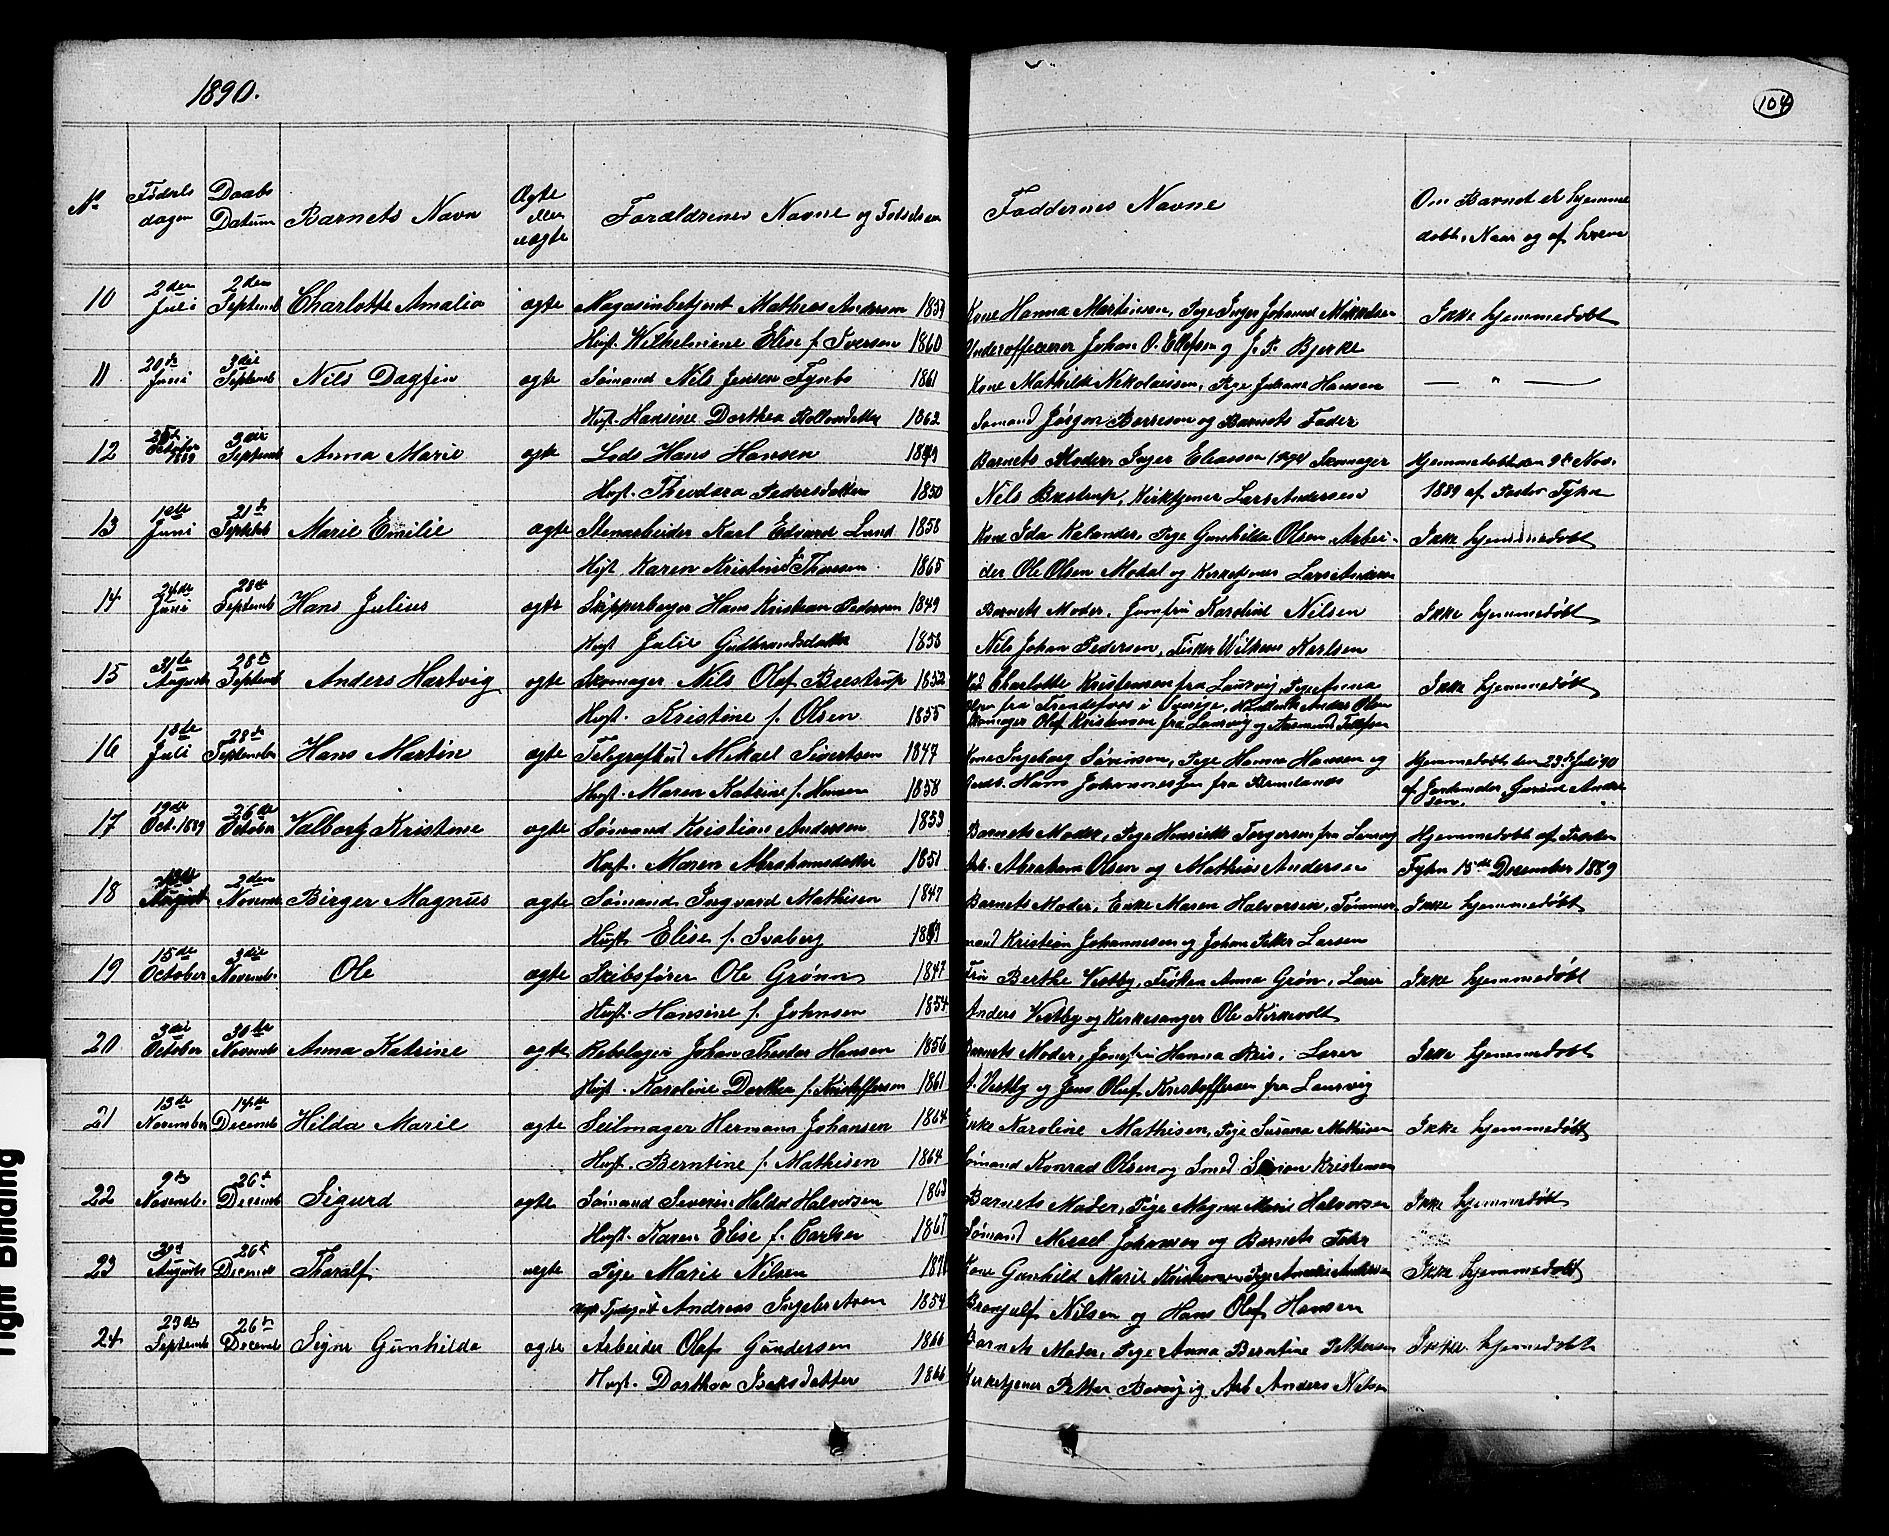 1890.
104
No Fødsels dagen Daabs Datum Barnets Navn Ægte eller uægte Forældrenes Navne og Fødsels
Faddernes Navne Om Barnet er hjemme døbt, Naar og af hvem
10 2den Juli 2den Septemb Charlotte Amalia ægte Magasinbetjent Mathias Andersen 1859 Kone Hanna Martinsen, Pige Inger Johanne Mikkelsen Ikke hjemmedøbt
Hust. Wilhelmine Elise f. Iversen 1860 Underofficerer Johan O. Ellefsen og J. P. Bjerke
11 20de Juni 3die Septemb Nils Dagfin ægte Sømand Nils Jensen Fynbo 1861 Kone Mathilde Nikolaissen, Pige Juliane Hansen — " —
Hust. Hansine Dorthea Rollandatter 1862 Sømand Jørgen Børresen og Barnets Fader
12 October 1889 3die Septemb Anna Marie ægte Lods Hans Hansen 1849 Barnets Moder, Inger Eliassen (Pige) Skomager Hjemmedøbt den 9de Nov.
Hust. Theodora Pedersdatter 1850 Nils Bustrup, Kirketjener Lars Andersen 1889 af Pastor Fyhn
13 1ste Juni 21de Septemb Marie Emilie ægte Stenarbeider Karl Edvard Lund 1858 Kone Ida Kalander, Pige Gunhilda Olsen, Arbei- Ikke hjemmedøbt
Hust. Karen Kristine Thoresen 1865 der Ole Olsen Modal og Kirketjener Lars Andersen
14 24de Juni 28de Septemb Hans Julius ægte Skipperborger Hans Kristian Pedersen 1849 Barnets Moder, Jomfru Karoline Nilsen Ikke hjemmedøbt
Hust. Julie Gudbrandsdatter 1858 Nils Johan Pedersen, Fisker Wilhelm Karlsen
15 31te August 28de Septemb Anders Hartvig ægte Skomager Nils Olaf Bustrup 1852 Charlotte Kristensen fra Laurvig, Pige Anna Ikke hjemmedøbt
Hust. Kristine f. Olsen 1855 Olsen fra i Sverige, Anders Olsen
Skomager Olaf Kristensen fra Laurvig og Aarmund Tellefsen
16 13de Juli 28de Septemb Hans Martin ægte Telegrafbud Mikael Sivertsen 1847 Kone Ingeborg Sørensen, Pige Hanna Hansen og Hjemmedøbt den 23de Juli 90
Hust. Maren Katrine f. Hansen 1858 Hans Johannessen fra af Jordemoder Andersen.
17 19de Oct. 1889 26de October Valborg Kristine ægte Sømand Kristian Andersen 1853 Barnets Moder, Pige Henriette Torgersen fra Laurvig Hjemmedøbt af Pastor
Hust. Maren Abrahamsdatter 1851 Arb. Abraham Olsen og Mathias Andersen Fyhn 15de December 1889
18 August 2den Novemb Birger Magnus ægte Sømand Ingvard Mathisen 1847 Barnets Moder, Enke Maren Halvorsen, Tømmer- Ikke hjemmedøbt
Hust. Elise f. Svaberg 1849 mand Kristian Johannesen og Johan Petter Larsen
19 15de October 3die Novemb. Ole ægte Skibsfører Ole Grønn 1847 Fru Berthe Vestby, Frøken Anna Grøn, Lærer Ikke hjemmedøbt
Hust. Hansine f. Johnsen 1854 Anders Vestby og Kirkesanger Ole Kirkevolt
20 3die October 30te Novemb Anna Katrine ægte Rebslager Johan Theodor Hansen 1856 Barnets Moder, Jomfru Hanna Riis, Lærer Ikke hjemmedøbt
Hust. Karoline Dorthea f. Kristoffersen 1861 A. Vestby og Jens Oluf Kristoffersen fra Laurvig
21 13de November 14de Decemb Hilda Marie ægte Seilmager Hermann Johansen 1864 Enke Karoline Mathisen, Pige Susana Mathisen Ikke hjemmedøbt
Hust. Berntine f. Mathisen 1864 Sømand Konrad Olsen og Smed Simon Kristensen
22 9de Novemb. 26de Decemb Sigurd ægte Sømand Severin Haldor Halvorsen 1863 Barnets Moder, Pige Magna Marie Halvorsen Ikke hjemmedøbt
Hust. Karen Elise f. Carlsen 1867 Sømand Johansen og Barnets Fader
23 August 26de Decemb Tharalf uægte Pige Marie Nilsen Kone Gunhild Marie Kristensen, Pige Amalie Andersen Ikke hjemmedøbt
Andreas Ingebretsen 1854 Brønjulf Nilsen og Hans Oluf Hansen
24 23de Septemb 26de Decemb Signe Gunhilda ægte Arbeider Olaf Gundersen 1866 Barnets Moder, Pige Anna Berntine Pettersen Ikke hjemmedøbt
Hust. Dorthea Isaksdatter 1866 Kirketjener Petter og Arb Anders Nilsen
Tight Binding